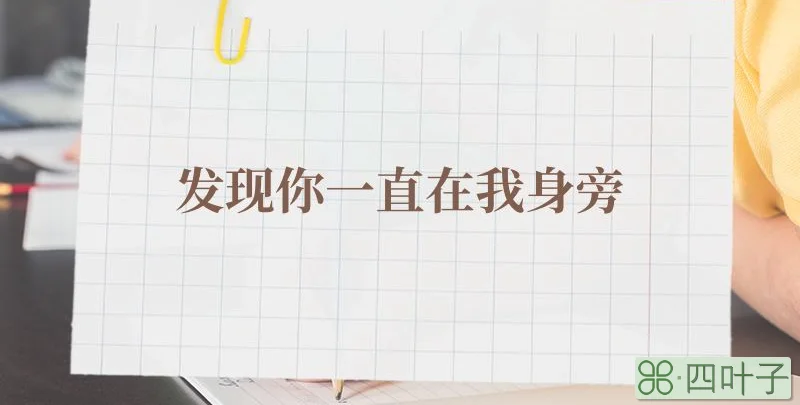 发现你一直在我身旁
四叶子